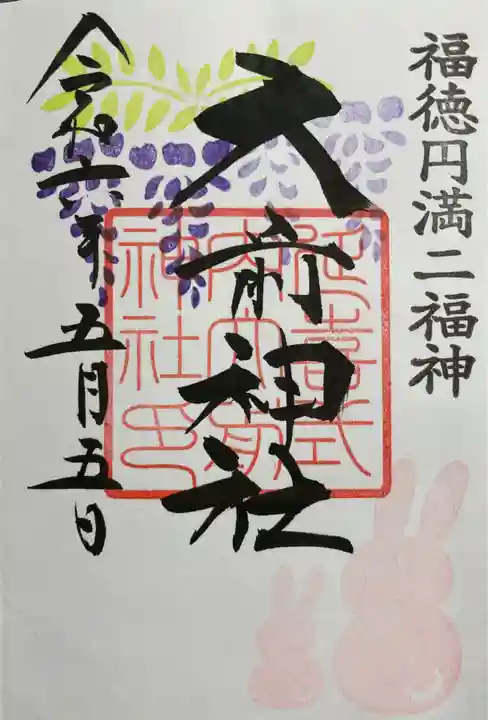 福徳円満二福神
大前神社
延喜式
内大前
神社印
令和六年五月五日